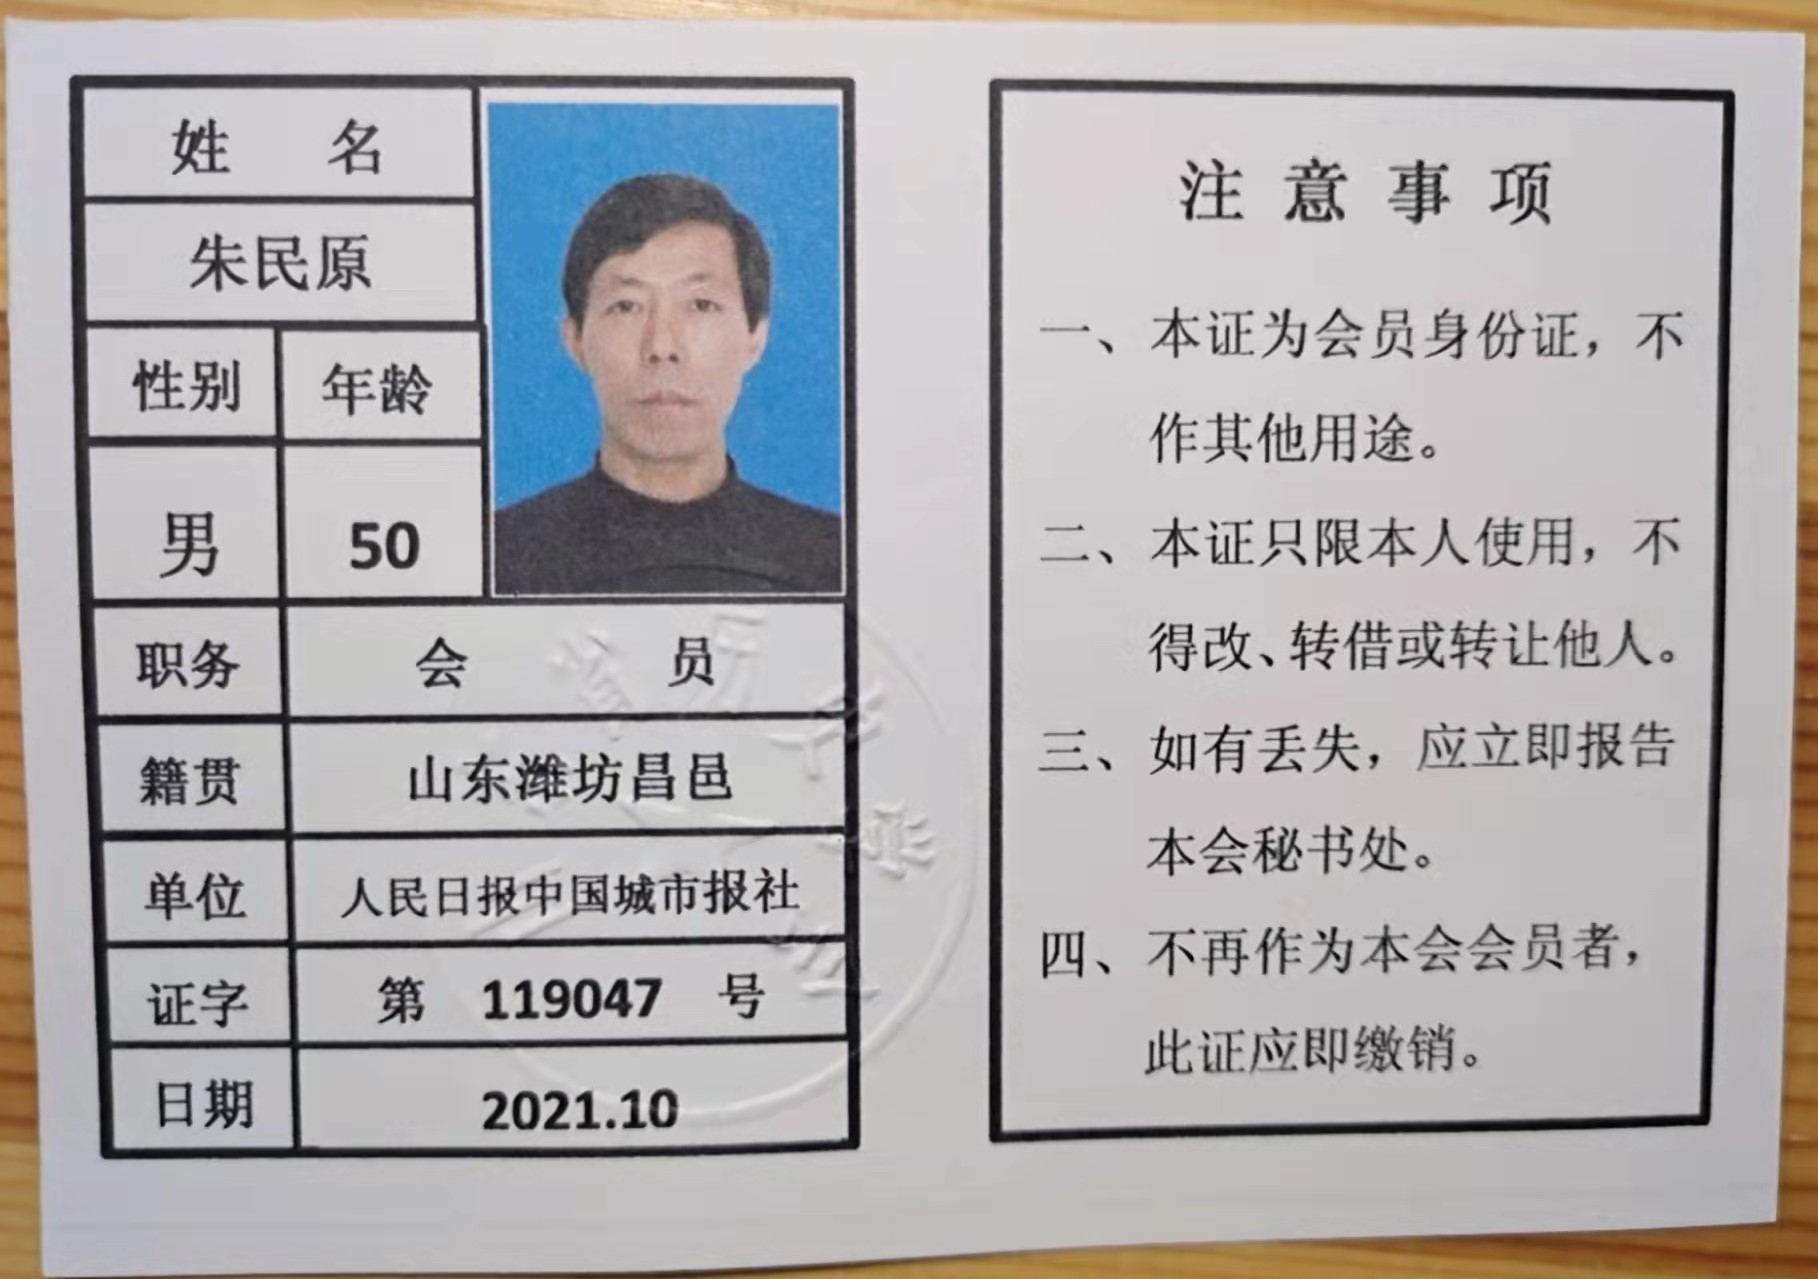 姓 名
朱民原
性别 年龄
男 50
职务 会 员
籍贯 山东潍坊昌邑
单位 人民日报中国城市报社
证字 第 119047 号
日期 2021.10
注意事项
一、本证为会员身份证，不
作其他用途。
二、本证只限本人使用，不
得改、转借或转让他人。
三、如有丢失，应立即报告
本会秘书处。
四、不再作为本会会员者，
此证应即缴销。